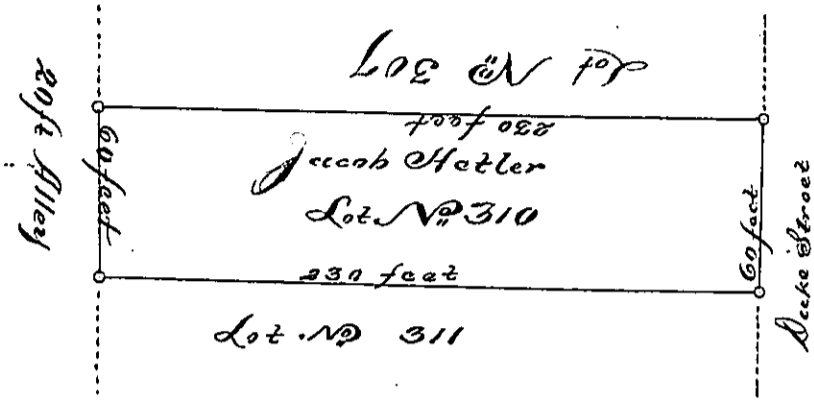 Lot No 307
230 feet
20 ft Alley
60 feet
Jacob Hetler
Lot No 310
60 feet
Duke Street
230 feet
Lot No 311